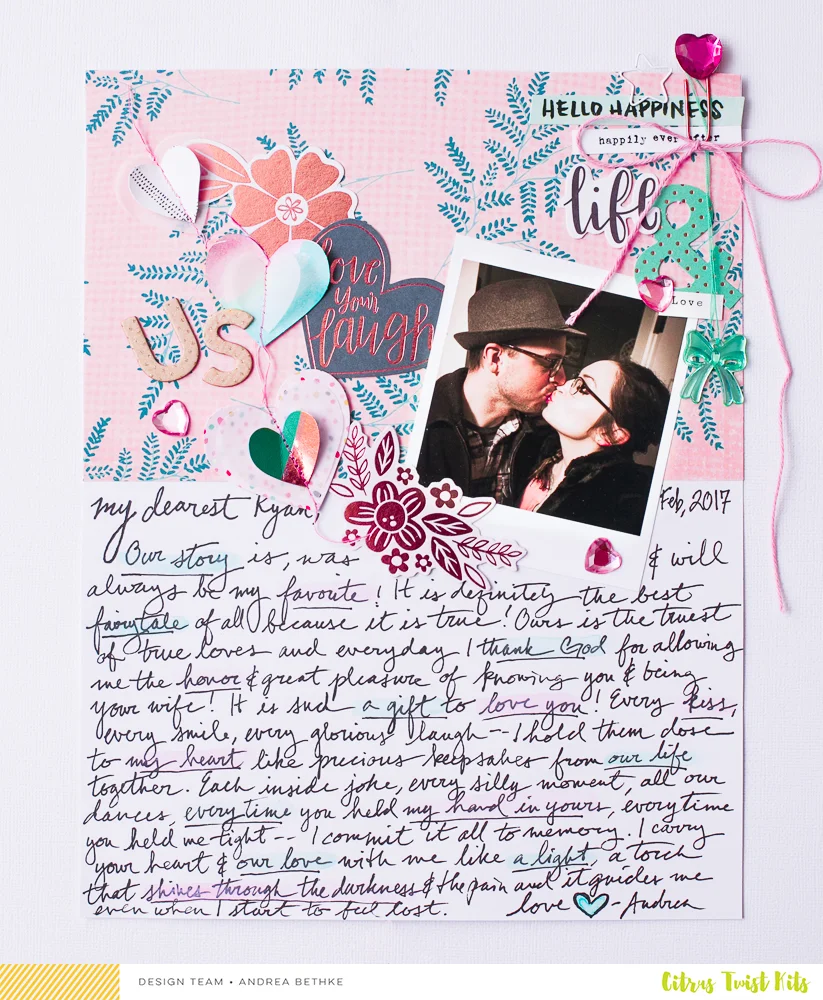 HELLO HAPPINESS
happily ever after
life
&
Love
love
your
laugh
US
my dearest Ryan,
Feb, 2017
Our story is, was & will
always be my favorite! It is definitely the best
fairytale of all because it is true! Ours is the truest
of true loves and everyday I thank God for allowing
me the honor & great pleasure of knowing you & being
your wife! It is such a gift to love you! Every kiss,
every smile, every glorious laugh -- I hold them close
to my heart like precious keepsakes from our life
together. Each inside joke, every silly moment, all our
dances, everytime you held my hand in yours, everytime
you held me tight -- I commit it all to memory. I carry
your heart & our love with me like a light, a torch
that shines through the darkness & the pain and it guides me
even when I start to feel lost. love - Andrea
DESIGN TEAM • ANDREA BETHKE
Citrus Twist Kits